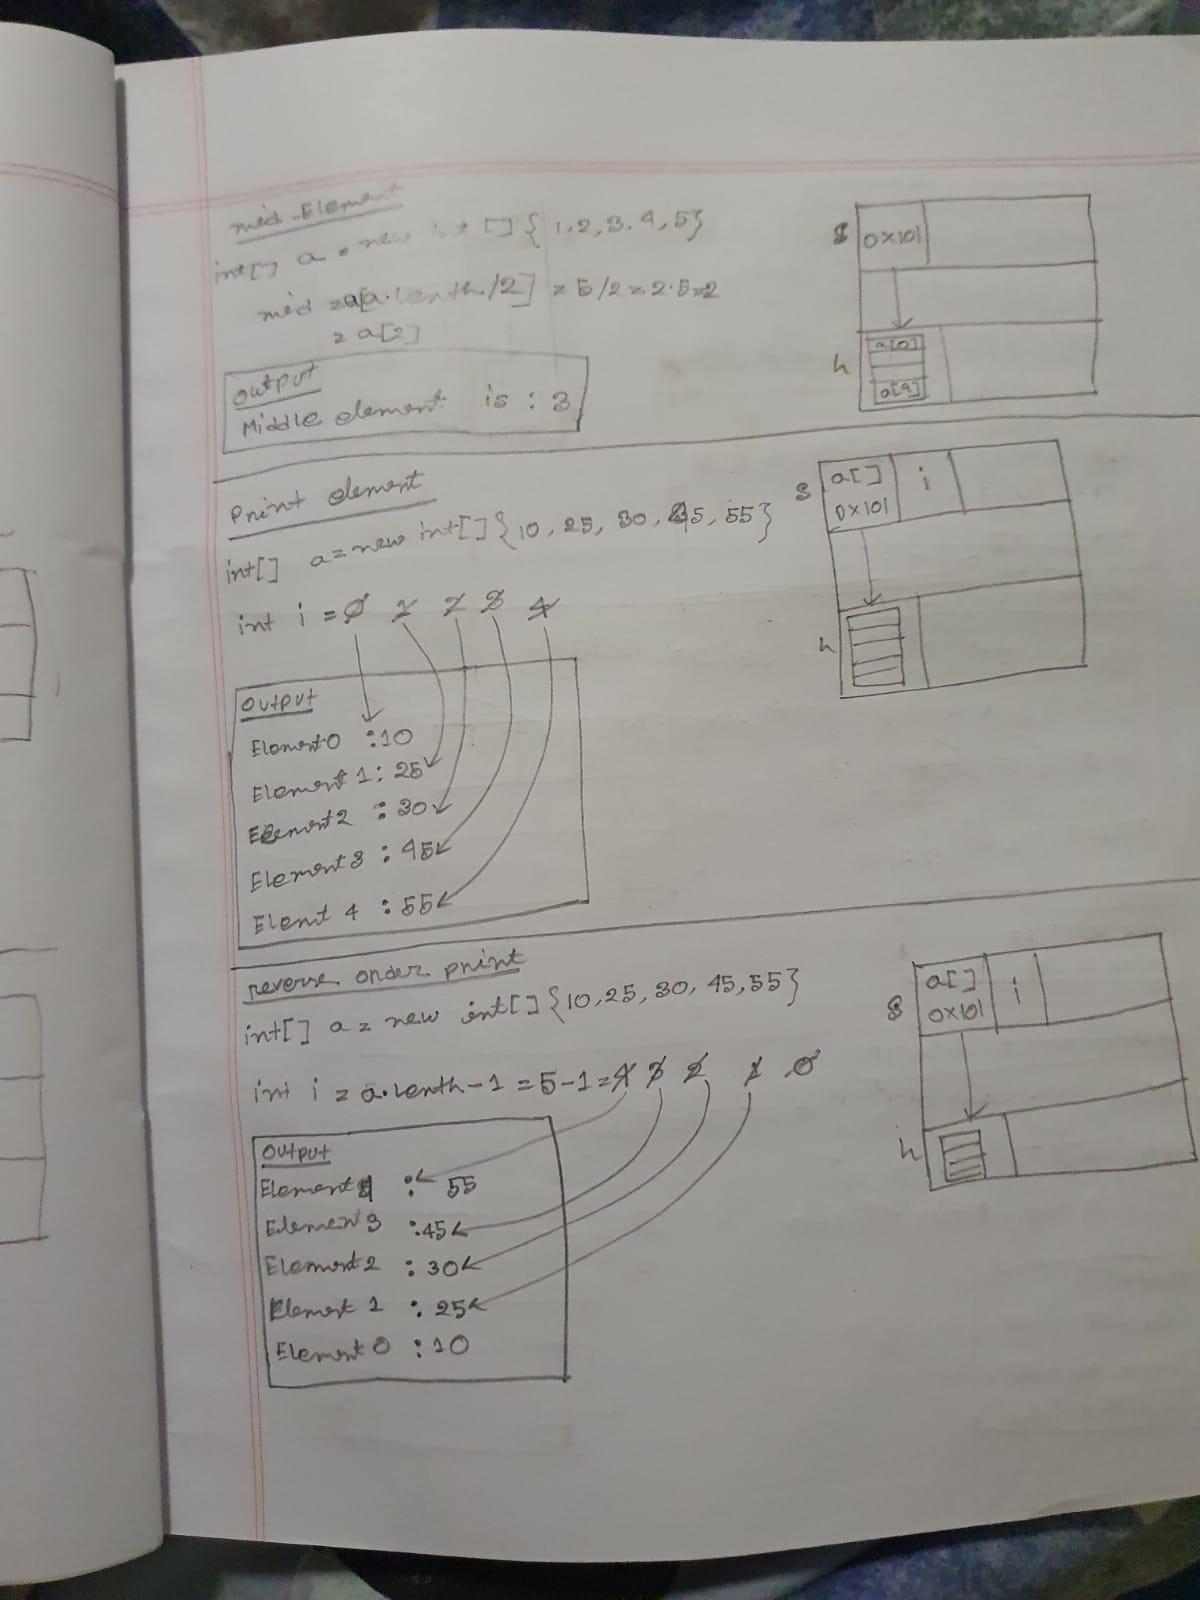 mid-Element
int[] a = new int []{1,2,3,4,5}
mid = a[a.lenth/2] = 5/2 = 2.5=2
= a[2]
Output
Middle element is : 3
S
0x101
h
a[0]
a[4]
Print element
int[] a = new int[]{10, 25, 30, 45, 55}
int i = 0 1 2 3 4
Output
Element0 :10
Element 1: 25
Element2 : 30
Element3 : 45
Elemt 4 : 55
S
a[] i
0x101
h
reverse order print
int[] a = new int[]{10,25,30,45,55}
int i = a.lenth-1 = 5-1=4 3 2 1 0
Output
Element4 : 55
Element3 :45
Element2 : 30
Element 1 : 25
Element0 :10
S
a[] i
0x101
h